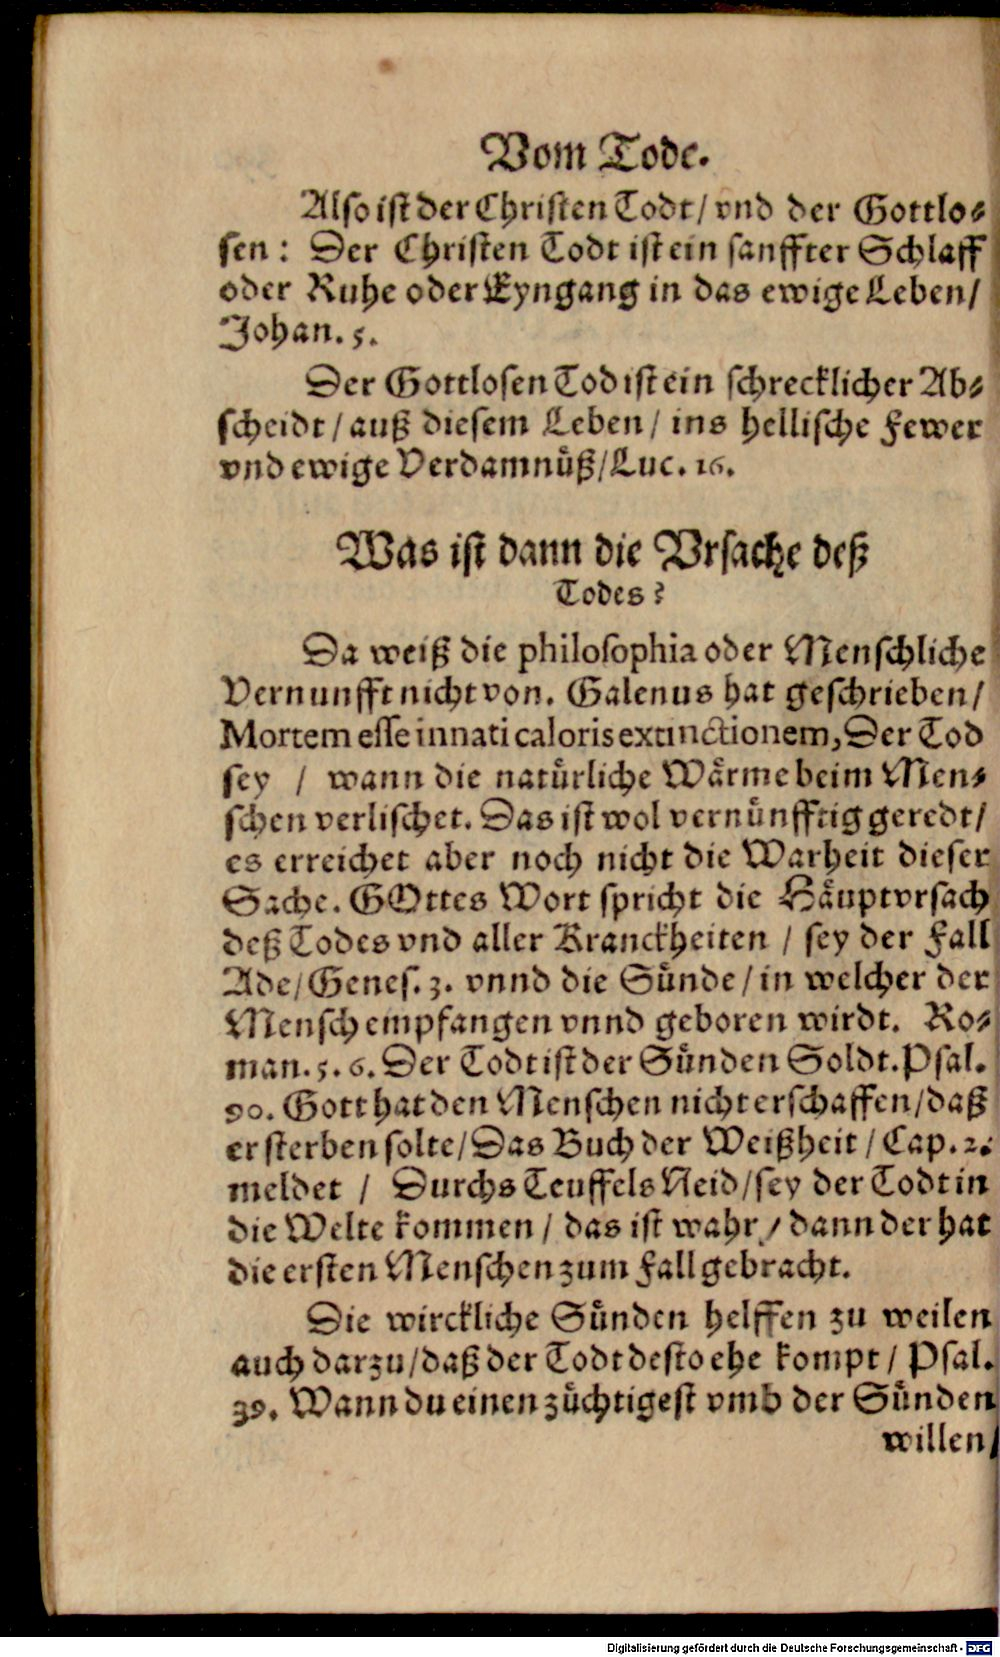 Vom Tode.
Also ist der Christen Todt / vnd der Gottlo⸗
sen: Der Christen Todt ist ein sanffter Schlaff
oder Ruhe oder Eyngang in das ewige Leben /
Johan. 5.
Der Gottlosen Tod ist ein schrecklicher Ab⸗
scheidt / auß diesem Leben / ins hellische Fewer
vnd ewige Verdamnuͤß / Luc. 16.
Was ist dann die Vrsache deß
Todes?
Da weiß die philosophia oder Menschliche
Vernunfft nicht von. Galenus hat geschrieben /
Mortem esse innati caloris extinctionem, Der Tod
sey / wann die natuͤrliche Waͤrme beim Men⸗
schen verlischet. Das ist wol vernuͤnfftig geredt /
es erreichet aber noch nicht die Warheit dieser
Sache. GOttes Wort spricht die Haͤuptvrsach
deß Todes vnd aller Kranckheiten / sey der Fall
Ade / Genes. 3. vnnd die Suͤnde / in welcher der
Mensch empfangen vnnd geboren wirdt. Ro⸗
man. 5. 6. Der Todt ist der Suͤnden Soldt. Psal.
90. Gott hat den Menschen nicht erschaffen / daß
er sterben solte / Das Buch der Weißheit / Cap. 2.
meldet / Durchs Teuffels Neid / sey der Todt in
die Welte kommen / das ist wahr / dann der hat
die ersten Menschen zum Fall gebracht.
Die wirckliche Suͤnden helffen zu weilen
auch darzu / daß der Todt desto ehe kompt / Psal.
39. Wann du einen zuͤchtigest vmb der Suͤnden
willen /
Digitalisierung gefördert durch die Deutsche Forschungsgemeinschaft - DFG